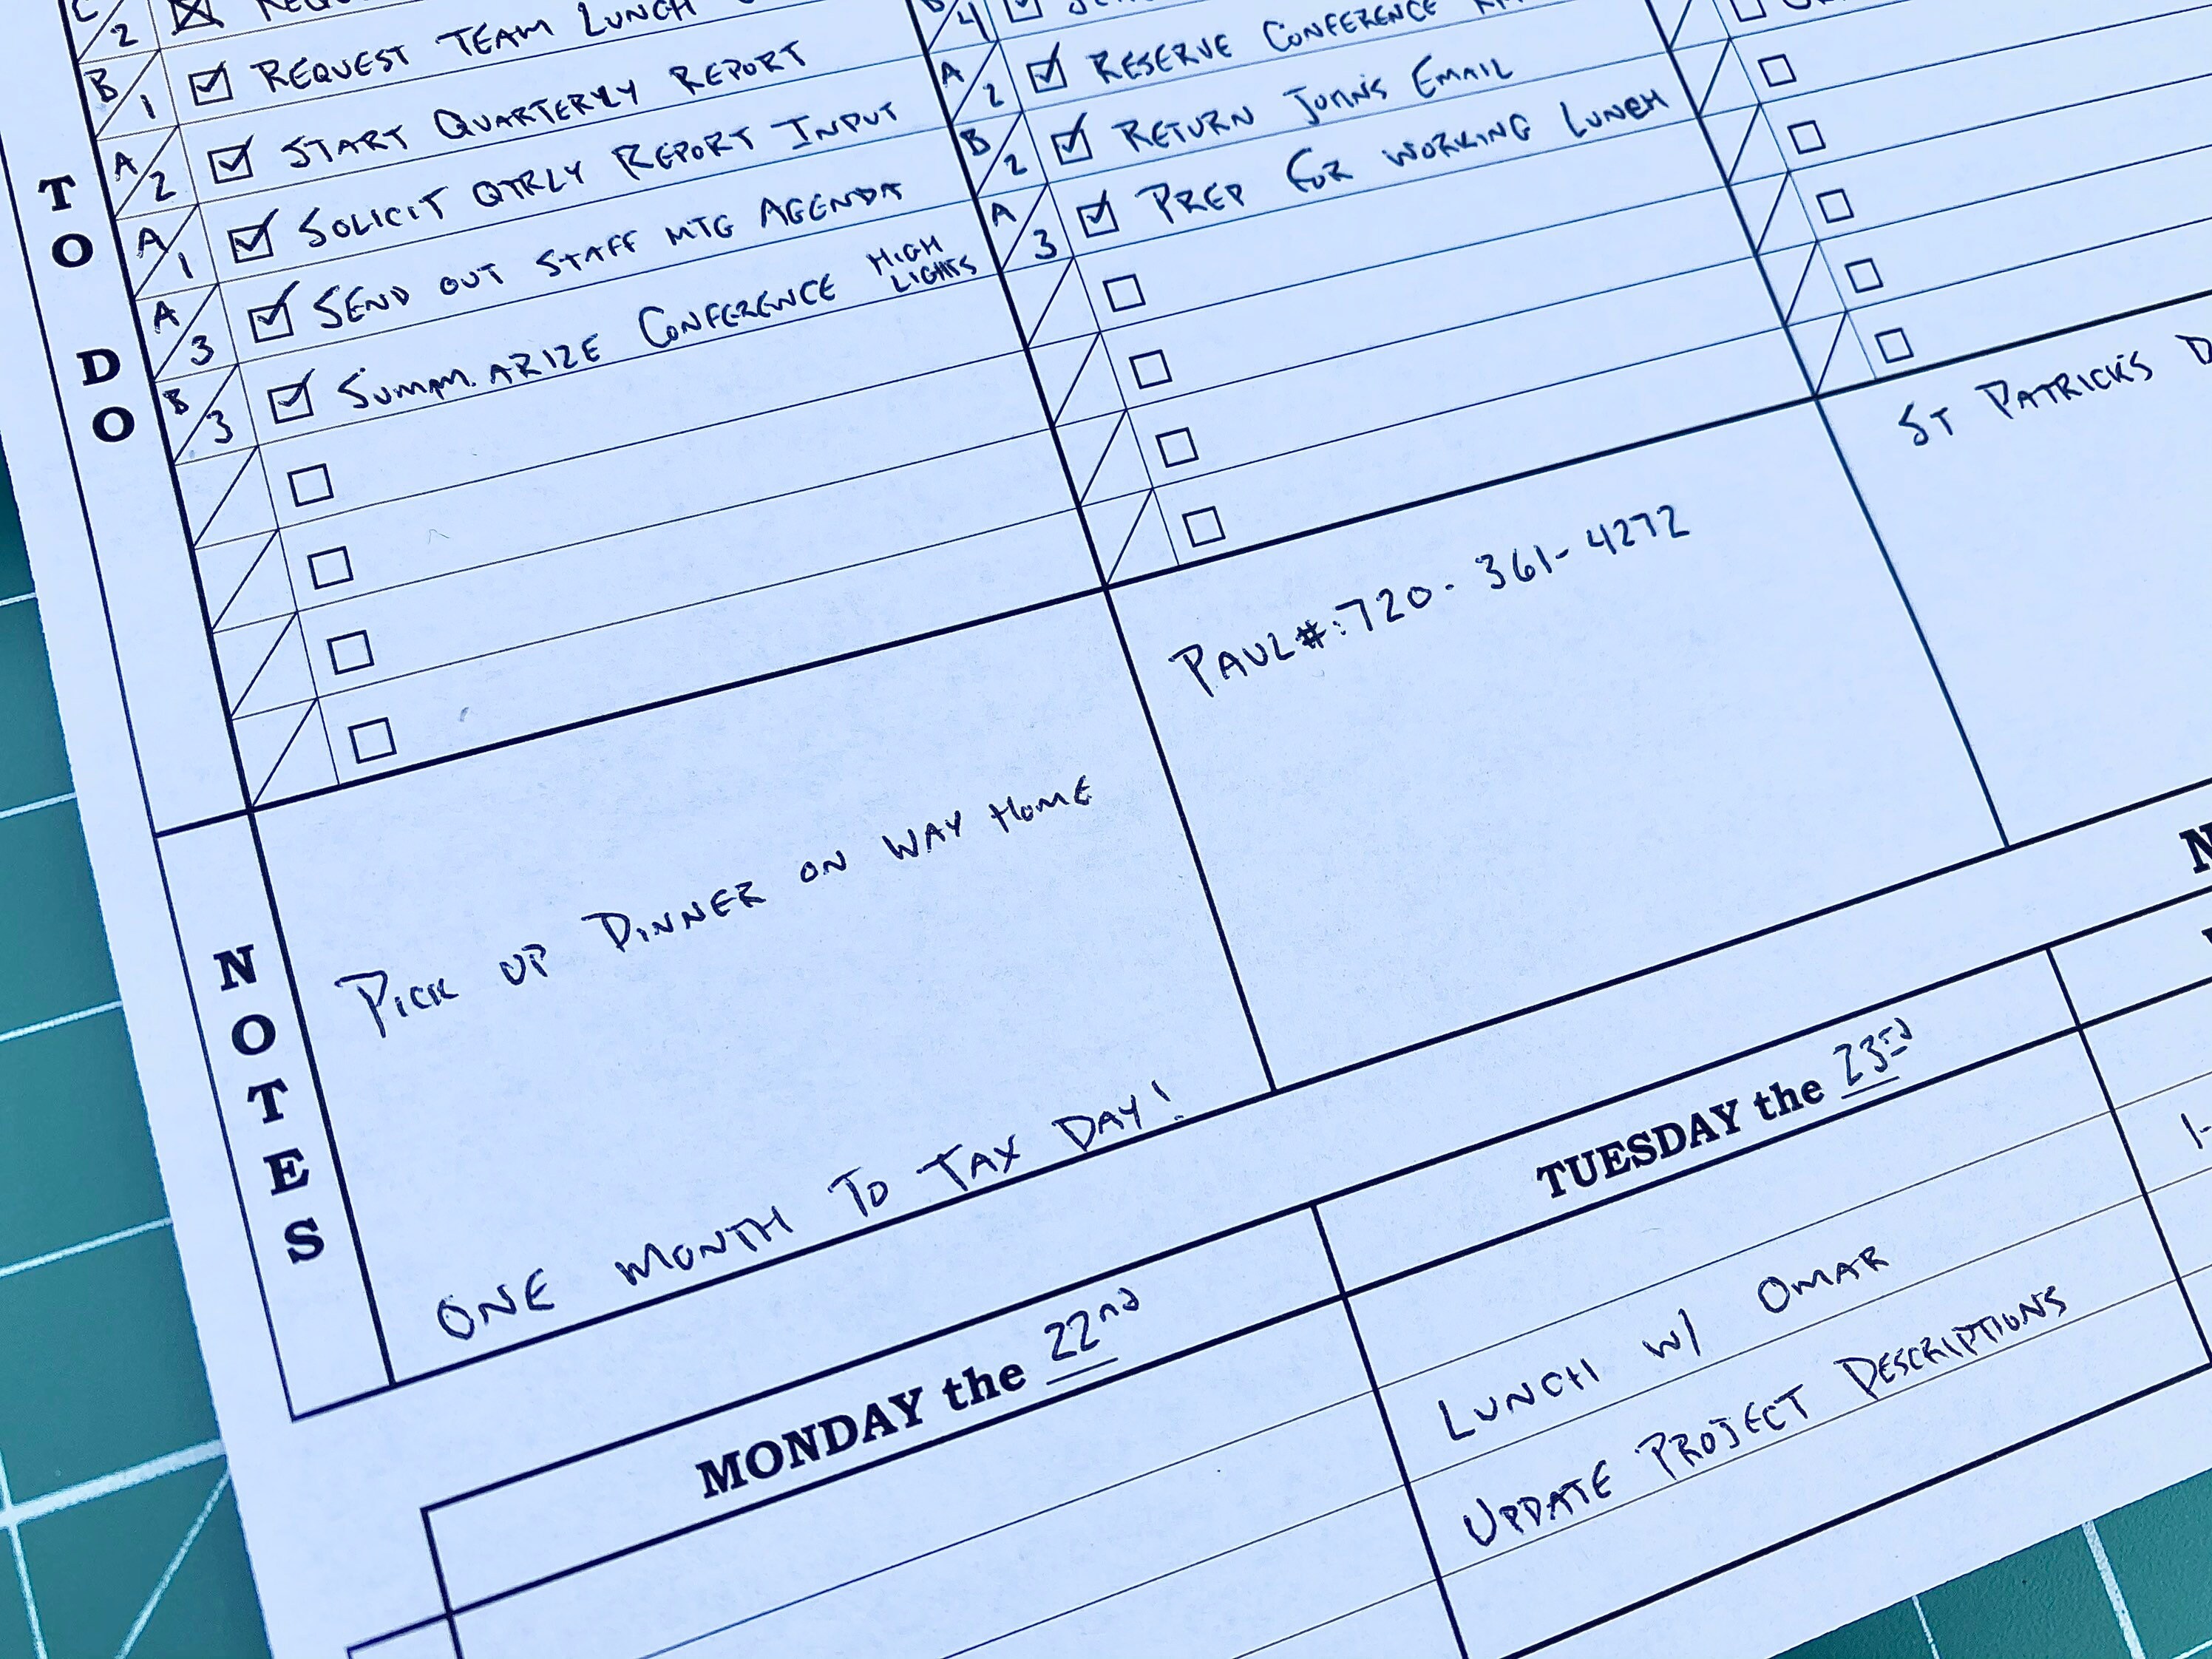 C/2
B/1 REQUEST TEAM LUNCH
A/2 START QUARTERLY REPORT
A/1 SOLICIT QTRLY REPORT INPUT
A/3 SEND OUT STAFF MTG AGENDA
B/3 SUMMARIZE CONFERENCE HIGH
LIGHTS
4
A/2 RESERVE CONFERENCE
B/2 RETURN JOHN'S EMAIL
A/3 PREP FOR WORKING LUNCH
TO DO
NOTES
PICK UP DINNER ON WAY HOME
ONE MONTH TO TAX DAY!
PAUL #: 720-361-4272
ST PATRICK'S
MONDAY the 22nd
TUESDAY the 23rd
LUNCH W/ OMAR
UPDATE PROJECT DESCRIPTIONS